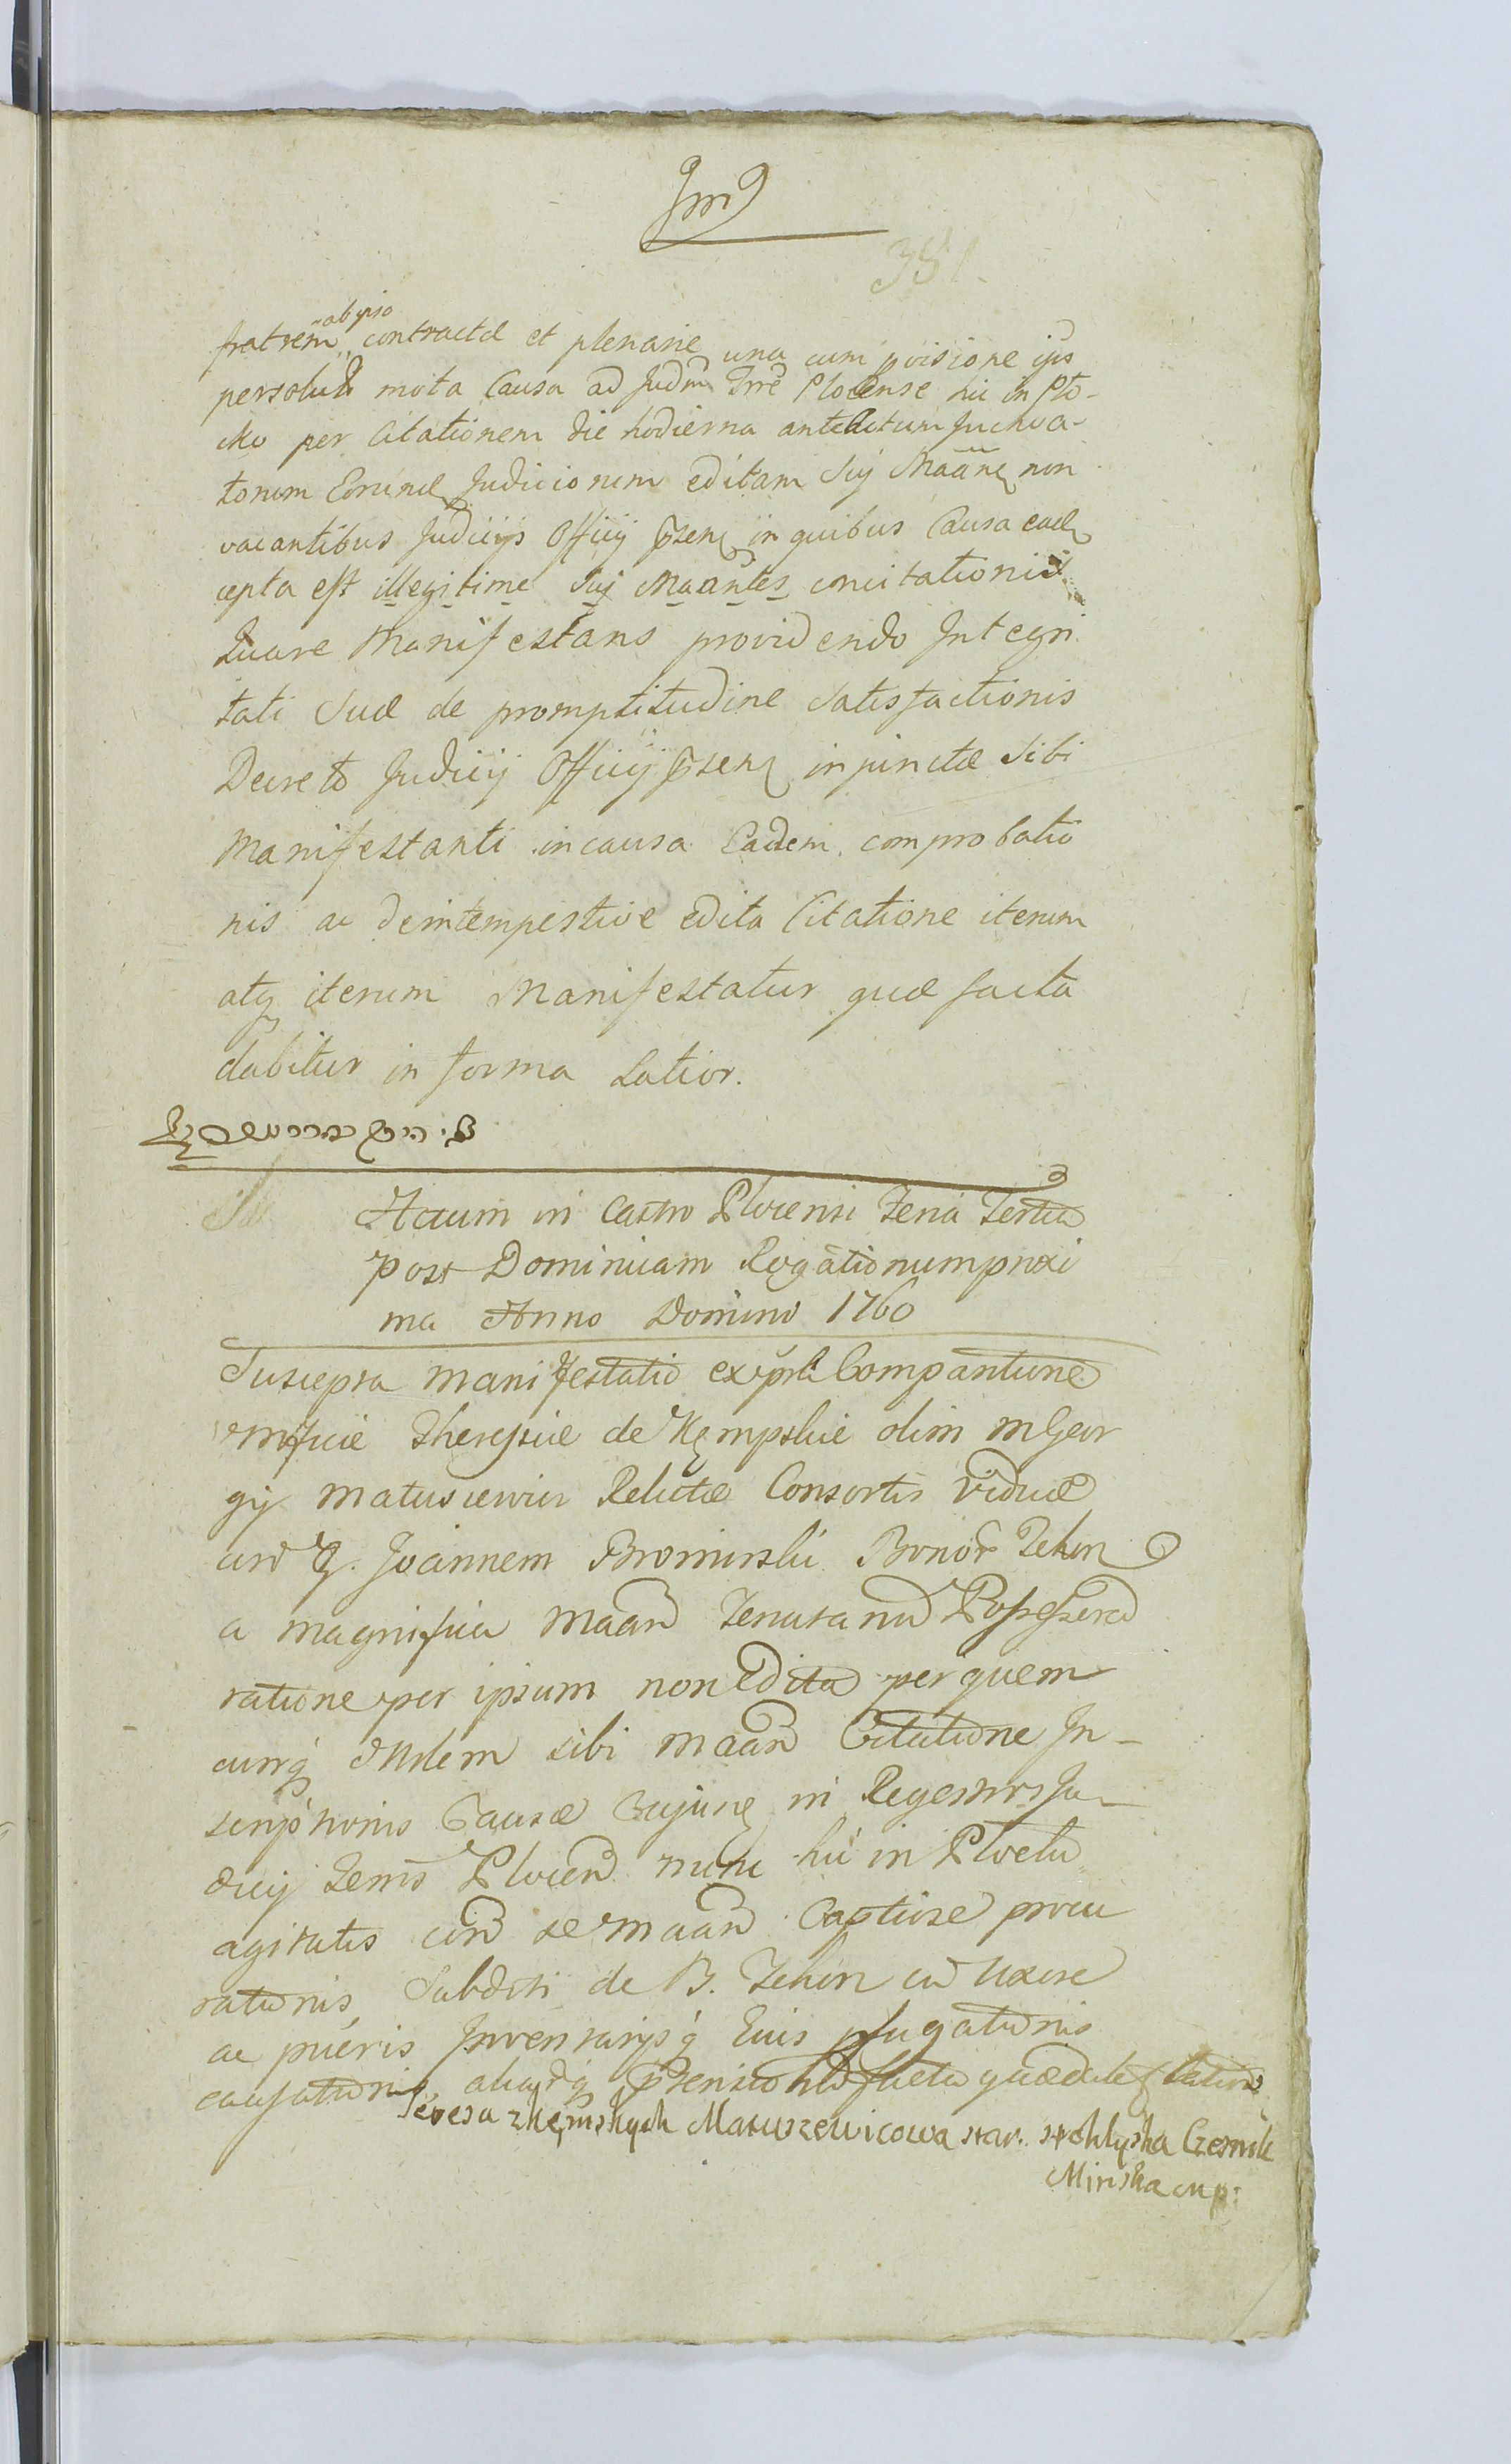 381.
ab ipso
fratrem contractæ et plenarie una cum pvisione ips
persolut mota Causa ad Judm Trre Plocense hic in Plo-
cko per Citationem die hodierna anteactum Inchoa-
tonum Eorund Judiciorum editam Sui Maane non
vacantibus Judicijs Officij psen in quibus Causa ead
cepta est illegitime Sui Maantes concitationis
Quare Manifestans providendo Integri
tati Suæ de promptitudine Satisfactionis
Decreto Judicij Officij psen injunctæ Sibi
Manifestanti in causa Eadem comprobatio
nis ac de intempestive edita Citatione iterum
atq iterum Manifestatur quæ facta
dabitur in forma Latior.
Actum in Castro Plocensi Feria Tertia
post Dominicam Rogationum proxi
ma Anno Domini 1760
Suscepta manifestatio ex psli Comparitione
mficæ Theresiæ de Kępskie olim M Geor
gij Matusiewicz Relictæ Consortis Viduæ
cir G. Joannem Bromirski Bonor
a magnifica Maan Tenutariu Possessore
ratione per ipsum non Edita per quem
cunq itidem sibi Maan Citatione In-
scriptionis Causæ Cujusq in Regestris Ju-
dicij Terris Plocen nunc hic in Plocku
agitatis cir se Maan Captiose procu
rationis, Subditi de B. cu Uxore
ac pueris Inventarijsq Eius pfugationis
causationis, aliasq psentib facta quæ dabit latior
Teresa z Kępskych Matuszewicowa star. stokliska Czesnik
Minska mp: